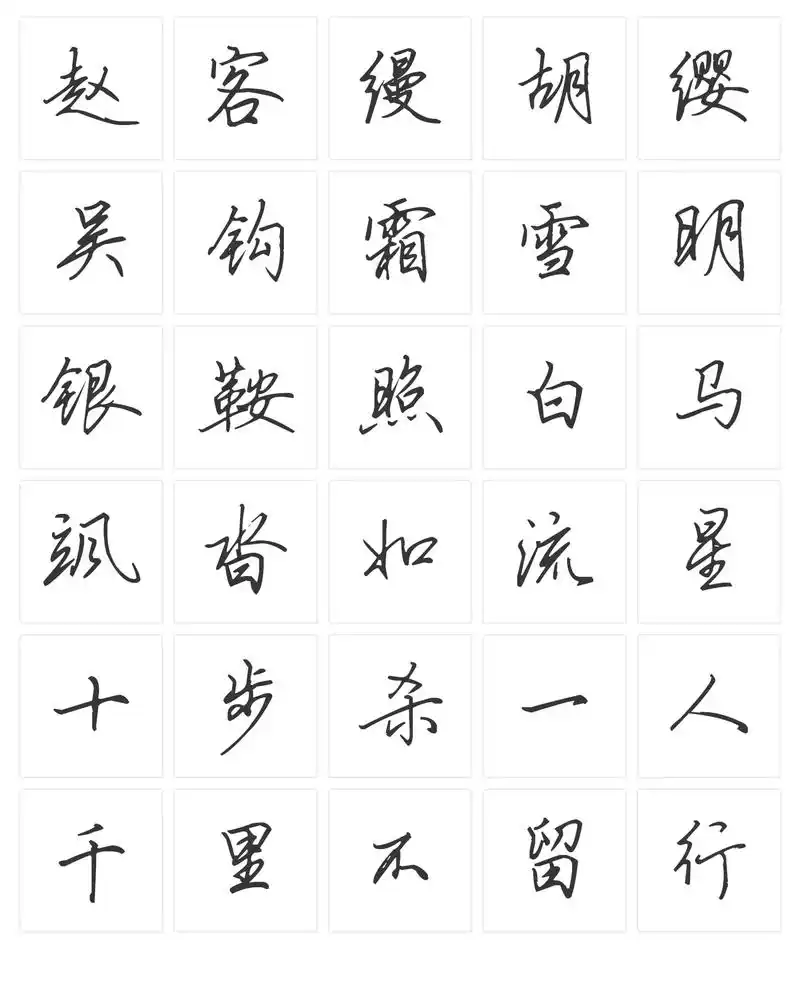 赵客缦胡缨
吴钩霜雪明
银鞍照白马
飒沓如流星
十步杀一人
千里不留行